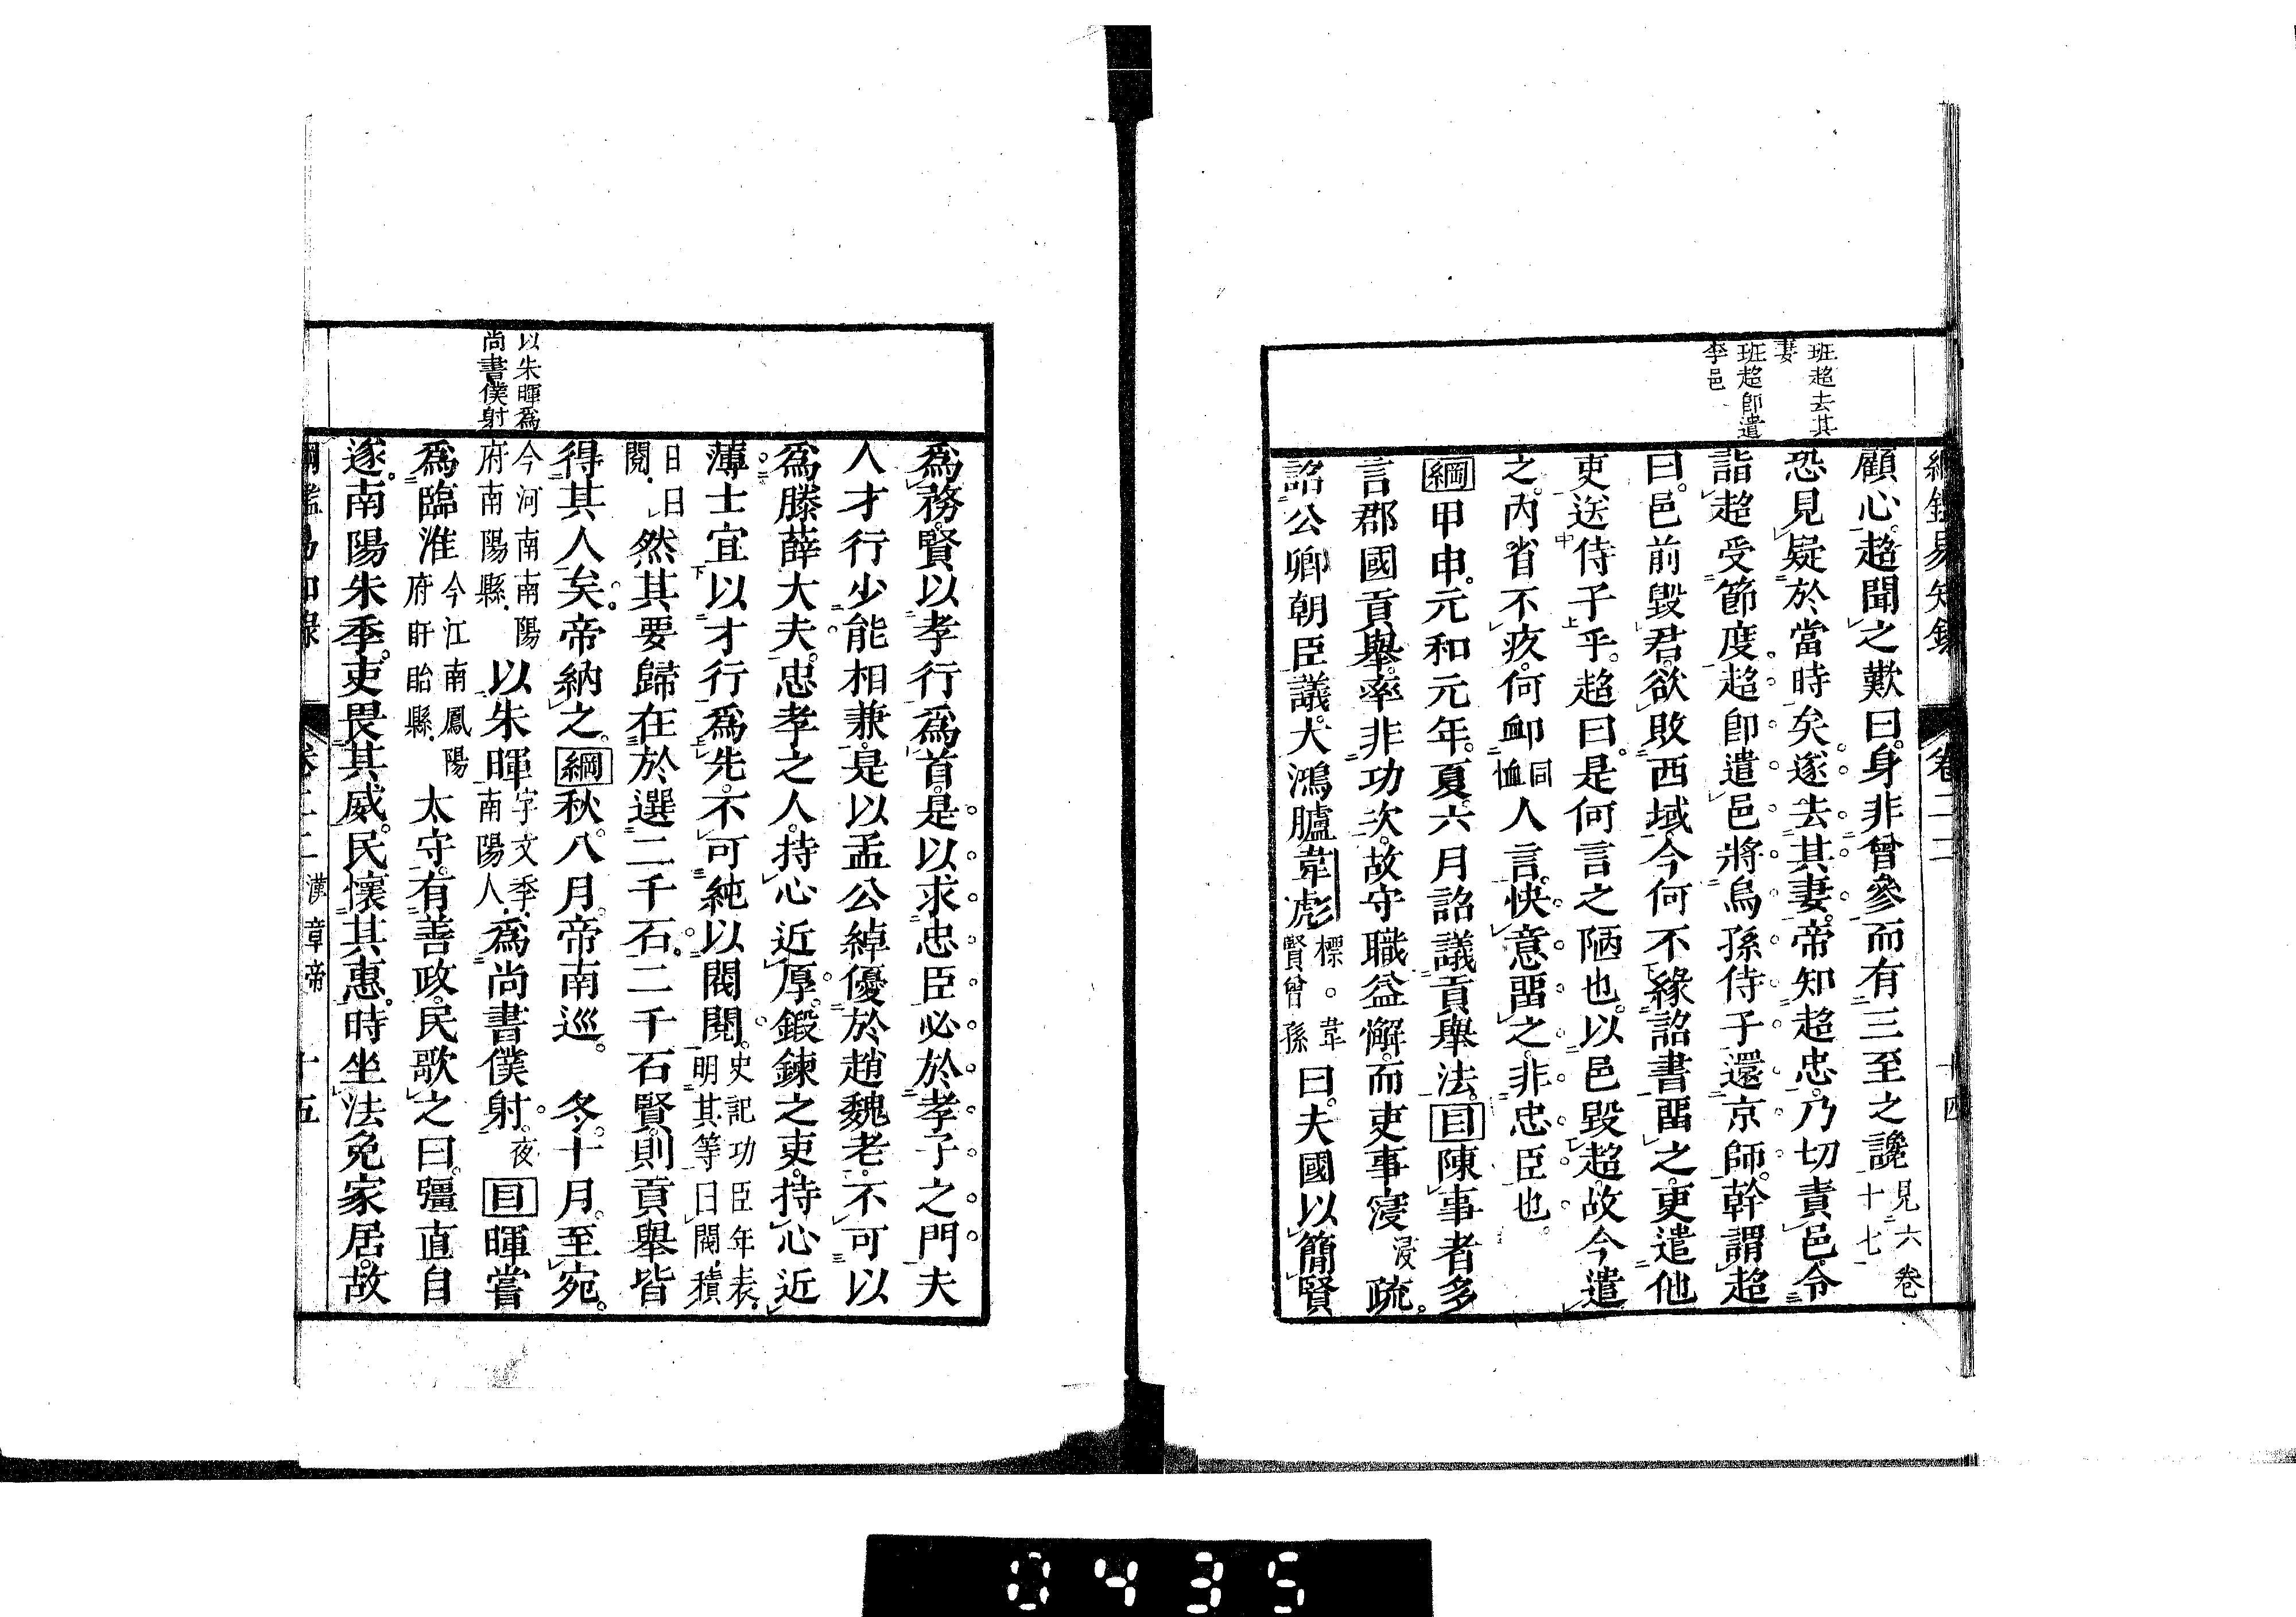 綱鑑易知錄 卷二十 十四
班超去其
妻
班超卽遣
李邑
顧心。超聞之歎曰。身非曾參而有三至之讒見六卷十七
恐見疑於當時矣。遂去其妻。帝知超忠。乃切責邑。令
詣超受節度。超卽遣邑將烏孫侍子還京師。幹謂超
曰。邑前毀君。欲敗西域。今何不緣詔書畱之。更遣他
吏送侍子乎。超曰。是何言之陋也。以邑毀超。故今遣
之。內省不疚。何卹同恤人言。快意畱之。非忠臣也。
綱甲申。元和元年。夏。六月詔議貢舉法。目陳事者多
言郡國貢舉。率非功次。故守職益懈。而吏事寖浸疏。
詔公卿朝臣議。大鴻臚韋彪標。韋賢曾孫曰。夫國以簡賢
以朱暉爲
尚書僕射
爲務。賢以孝行爲首。是以求忠臣必於孝子之門。夫
人才行少能相兼。是以孟公綽優於趙魏老。不可以
爲滕薛大夫。忠孝之人。持心近厚。鍛鍊之吏。持心近
薄。士宜以才行爲先。不可純以閥閱。史記功臣年表。明其等曰閥。積
日曰閱。然其要歸在於選二千石。二千石賢。則貢舉皆
得其人矣。帝納之。綱秋。八月。帝南巡。 冬。十月。至宛。
今河南南陽府南陽縣。以朱暉字文季。南陽人。爲尚書僕射。夜目暉嘗
爲臨淮今江南鳳陽府盱眙縣。太守。有善政。民歌之曰。彊直自
遂。南陽朱季。吏畏其威。民懷其惠。時坐法免家居。故
綱鑑易知錄 卷二十 漢章帝 十五
0435